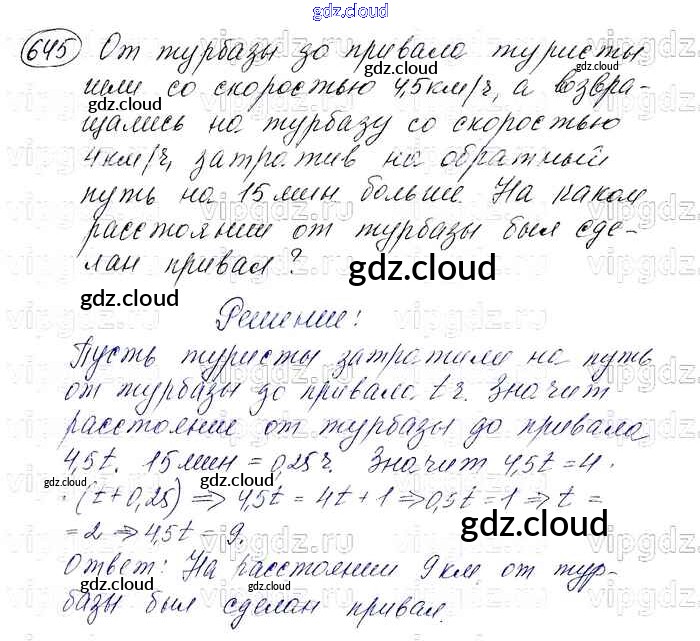 gdz.cloud
645 От турбазы до привала туристы
шли со скоростью 4,5км/ч, а возвра-
щались на турбазу со скоростью
4км/ч, затратив на обратный
путь на 15 мин больше. На каком
расстоянии от турбазы был сде-
лан привал?
gdz.cloud
Решение:
Пусть туристы затратили на путь
от турбазы до привала t ч. Значит
расстояние от турбазы до привала
4,5t. 15 мин = 0,25 ч. Значит 4,5t = 4 ·
· (t + 0,25) ⇒ 4,5t = 4t + 1 ⇒ 0,5t = 1 ⇒ t =
= 2 ⇒ 4,5t = 9.
gdz.cloud
Ответ: На расстоянии 9 км от тур-
базы был сделан привал.